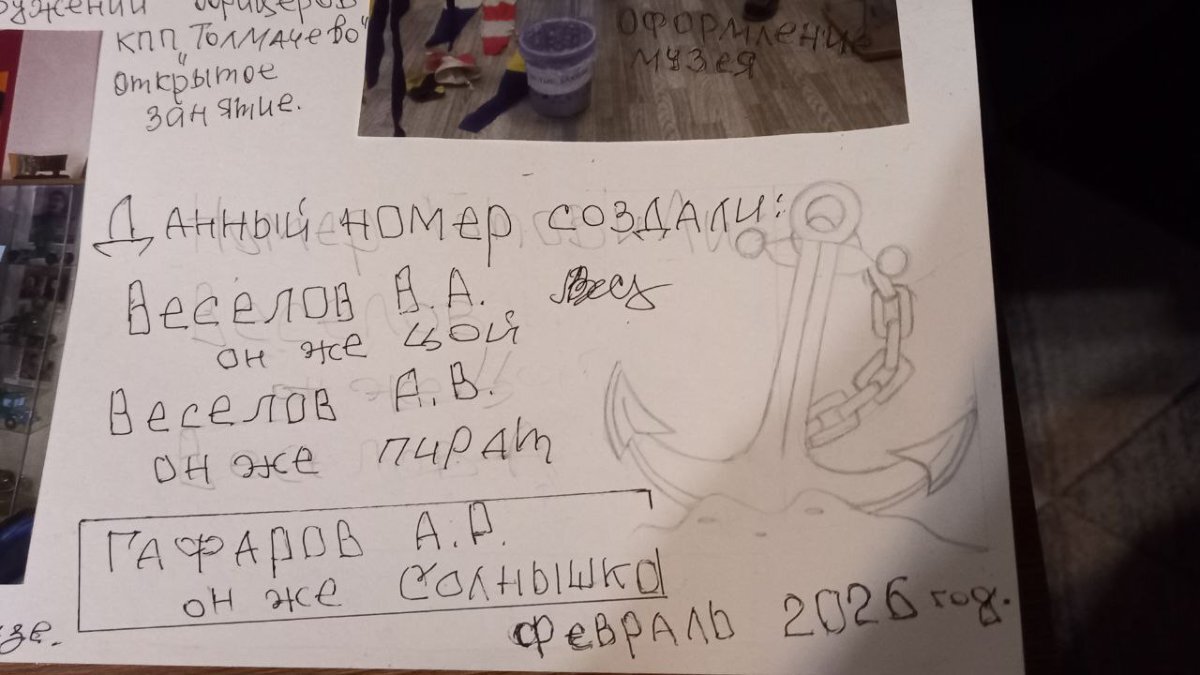 офицеров
КПП „Толмачево"
открытое
занятие.
оформление
музея
Данный номер создали:
Веселов В.А.
он же Цой
Веселов А.В.
он же пират
Гафаров А.Р.
он же Солнышко
февраль 2026 год.